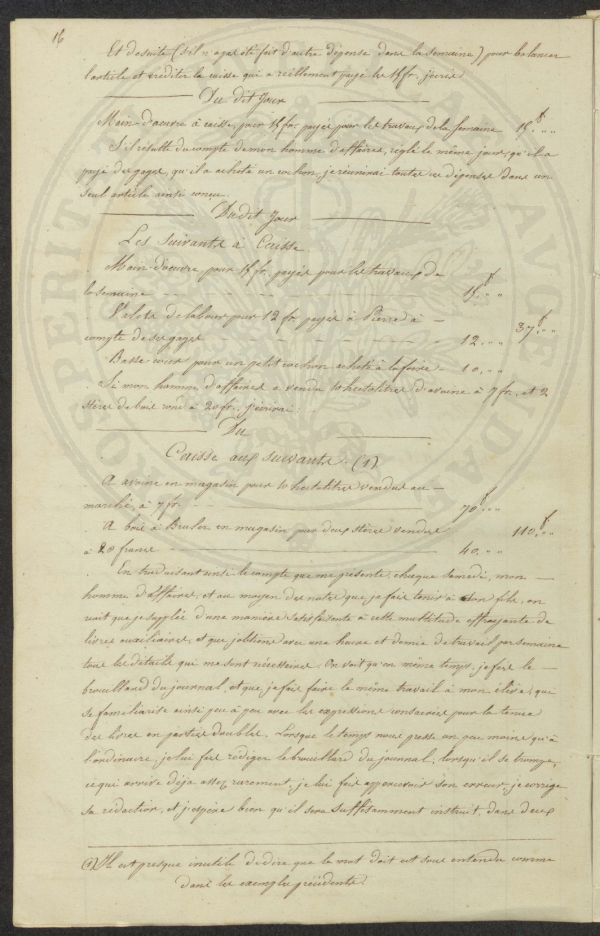 16
Et de suite (s'il n'a pas été fait d'autre dépense dans la semaine) pour balancer
l'article et créditer la caisse qui a réellement payé les 15 fr. j'écris
Du dit Jour
Main-d'œuvre à caisse, pour 15 fr. payés pour les travaux de la semaine 15.f „„
S'il résulte du compte de mon homme d'affaires, réglé le même jour, qu'il a
payé des gages, qu'il a acheté un cochon, je réunirai toutes ces dépenses dans un
seul article ainsi conçu.
Du dit Jour
Les Suivants à Caisse
Main-d'œuvre pour 15 fr. payés pour les travaux de
la semaine 15.f „„
Valets de labour pour 12 fr. payés à Pierre à
compte de ses gages 12. „„ 37.f „„
Basse cour pour un petit cochon acheté à la foire 10. „„
Si mon homme d'affaires a vendu 10 hectolitres d'avoine à 7 fr. et 2
stères de bois rond à 20 fr. j'écrirai:
Du
Caisse aux suivants. (1)
A avoine en magasin pour 10 hectolitres vendus au
marché, à 7 fr. 70.f „„
A bois à Bruler en magasin pour deux stères vendus 110.f „„
à 20 francs 40. „„
En traduisant ainsi le compte que me présente, chaque Samedi, mon
homme d'affaires, et au moyen des notes que je fais tenir à son fils, on
voit que je supplée d'une manière satisfaisante à cette multitude effrayante de
livres auxiliaires, et que j'obtiens avec une heure et demie de travail par semaine
tous les détails qui me sont nécessaires. On voit qu'en même temps, je fais le
brouillard du journal, et que je fais faire le même travail à mon élève, qui
se familiarise ainsi peu à peu avec les expressions consacrées pour la tenue
des livres en parties doubles. Lorsque le temps nous presse un peu moins qu'à
l'ordinaire, je lui fais rédiger le brouillard du journal, lorsqu'il se trompe,
ce qui arrive déjà assez rarement, je lui fais appercevoir son erreur, je corrige
sa rédaction, et j'espère bien qu'il sera suffisamment instruit, dans deux
(1) Il est presque inutile de dire que le mot doit est sous entendu comme
dans les exemples précédents.
PROSPERITE
AVGENDAE